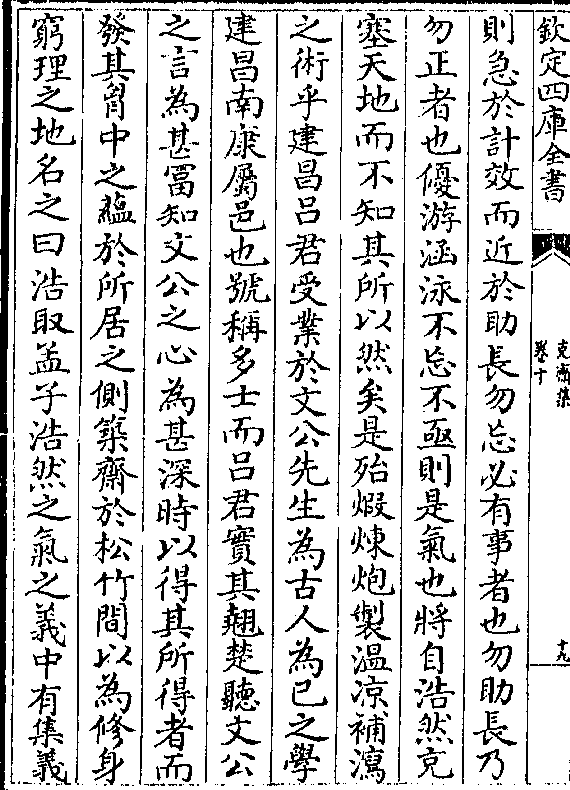 欽定四庫全書
克齋集
卷十
十九
則急於計效而近於助長勿忘必有事者也勿助長乃
勿正者也優游涵泳不忘不亟則是氣也將自浩然充
塞天地而不知其所以然矣是殆煅煉炮製溫凉補瀉
之術乎建昌呂君受業於文公先生為古人為已之學
建昌南康屬邑也號稱多士而呂君實其翹楚聽文公
之言為甚冨知文公之心為甚深時以得其所得者而
發其胷中之藴於所居之側築齋於松竹間以為修身
窮理之地名之曰浩取孟子浩然之氣之義中有集義